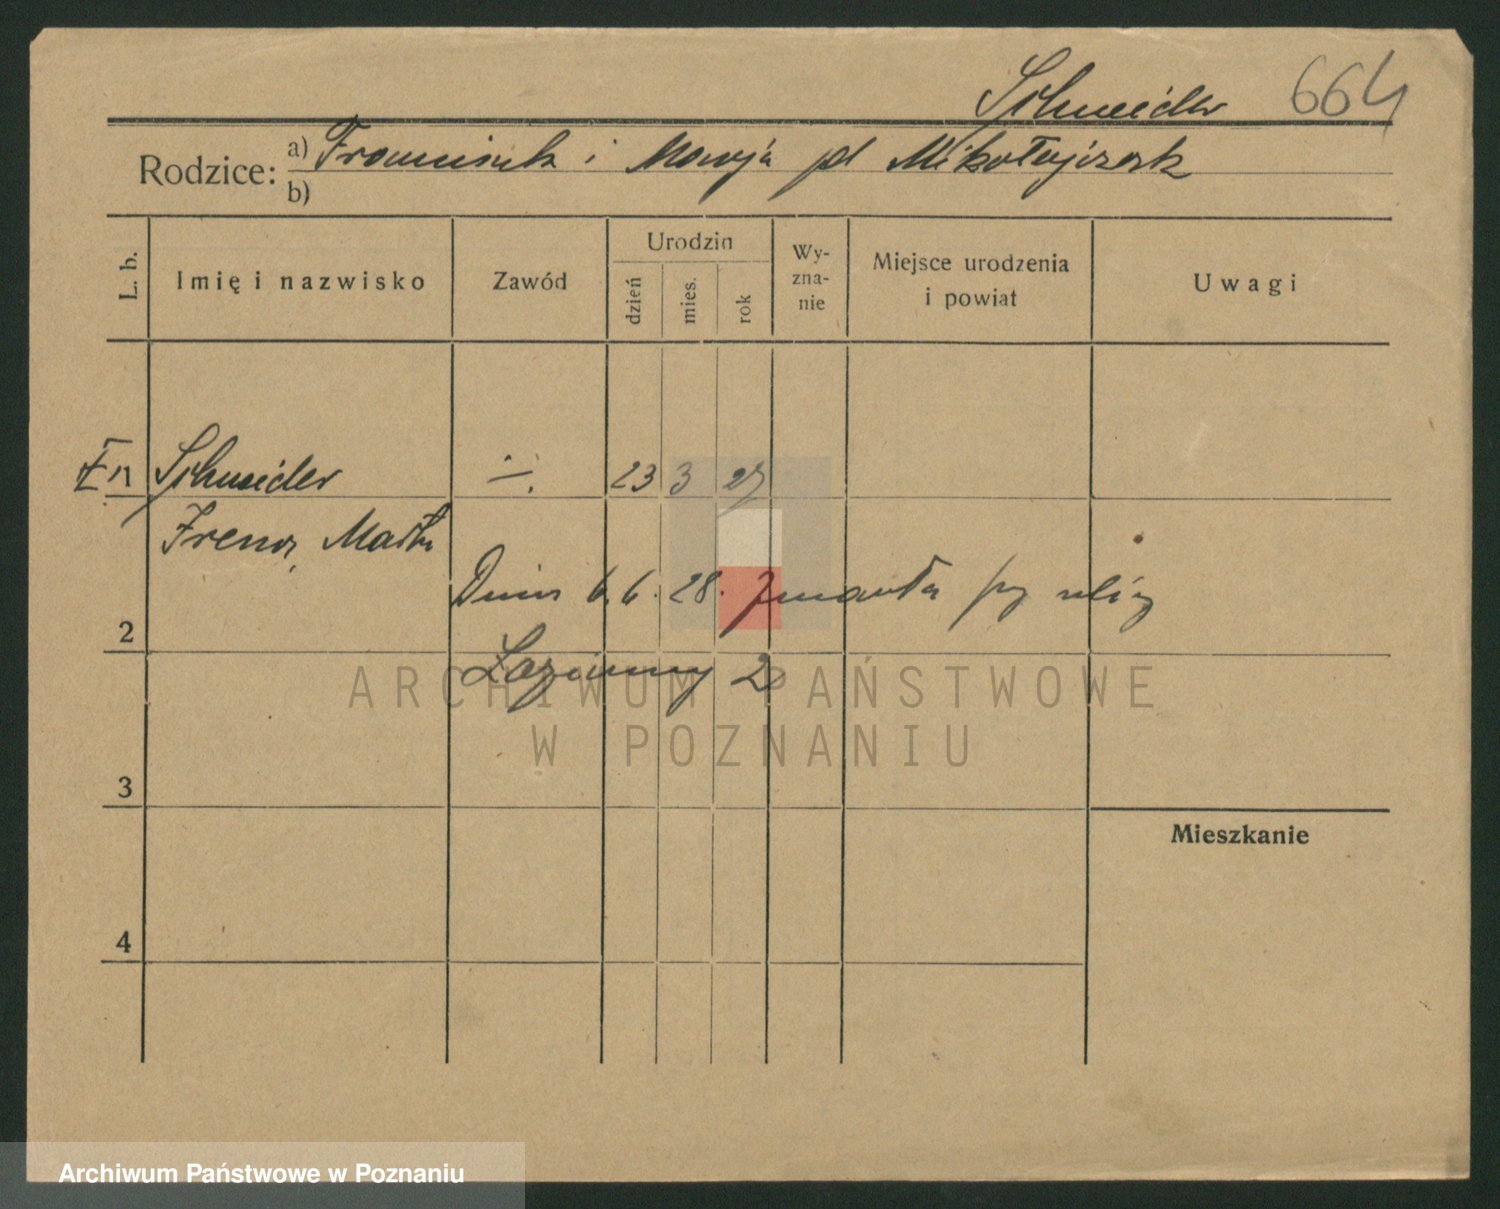 Schneider 664
Rodzice: a) Franciszek i Maryja pd Mikołajczak
b)
L. b.
Imię i nazwisko
Zawód
Urodzin
dzień
mies.
rok
Wy-
zna-
nie
Miejsce urodzenia
i powiat
Uwagi
Schneider -/. 23 3 27
Irena, Marta
Dnia 6.6.28. zmarła przy ulicy
2
Łazienny 2
ARCHIWUM PAŃSTWOWE
W POZNANIU
3
Mieszkanie
4
Archiwum Państwowe w Poznaniu